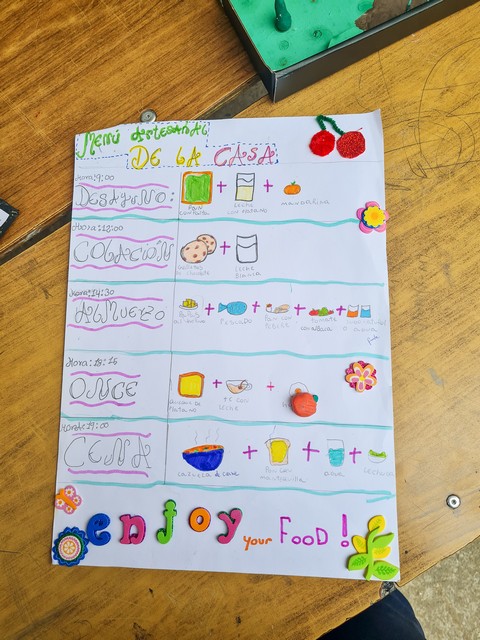 Menú Artesanal
DE LA CASA
Hora: 9:00
DESAYUNO:
PAN
LECHE
MANDARINA
Hora: 12:00
COLACIÓN
LECHE
BLANCA
Hora: 14:30
ALMUERZO
PESCADO
PAN CON
TOMATE
Hora: 18:15
ONCE
TE CON
LECHE
Hora: 19:00
CENA
CAZUELA de CARNE
PAN CON
MANTEQUILLA
AGUA
LECHUGA
enjoy your FOOD!